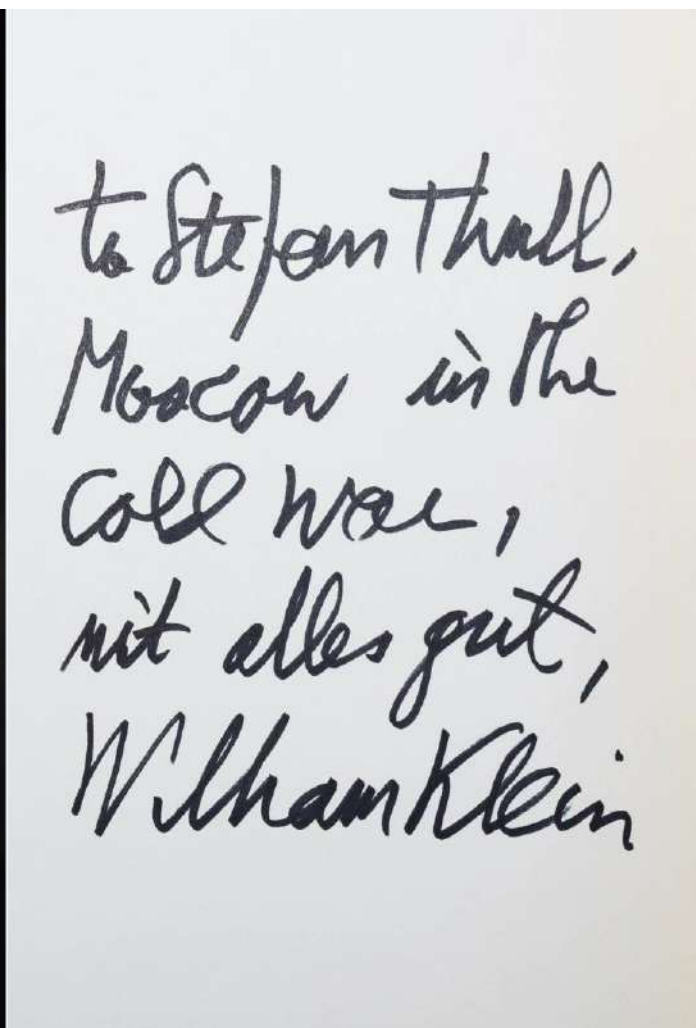 to Stefan Thull,
Moscow in the
cold war,
mit alles gut,
William Klein